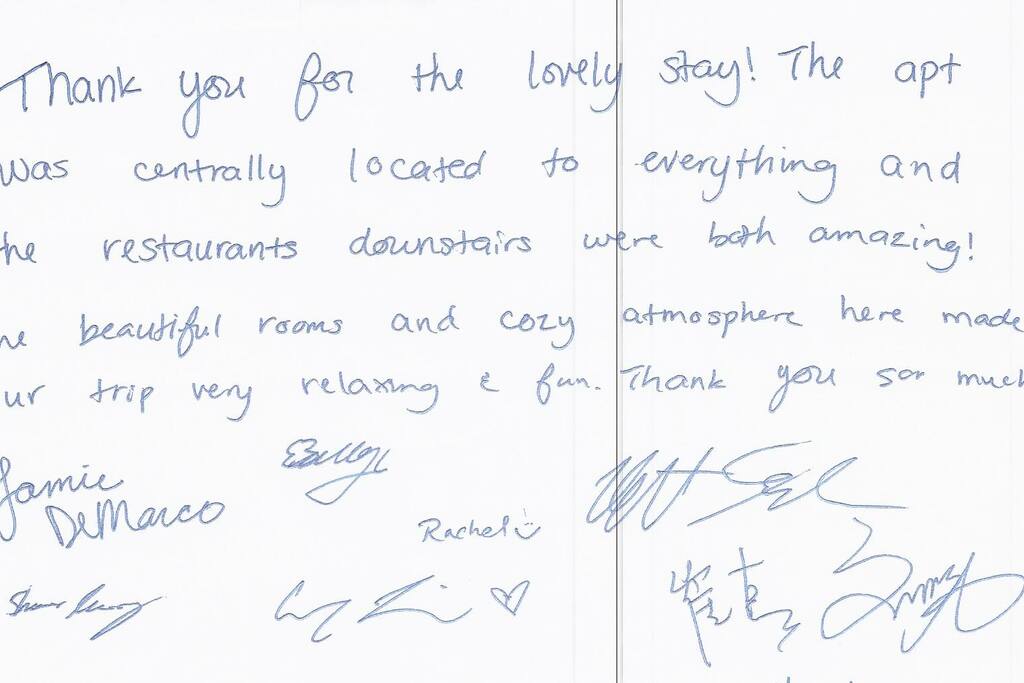 Thank you for the lovely stay! The apt
was centrally located to everything and
the restaurants downstairs were both amazing!
he beautiful rooms and cozy atmosphere here made
ur trip very relaxing & fun. Thank you sor much
Jamie
DeMarco
Rachel